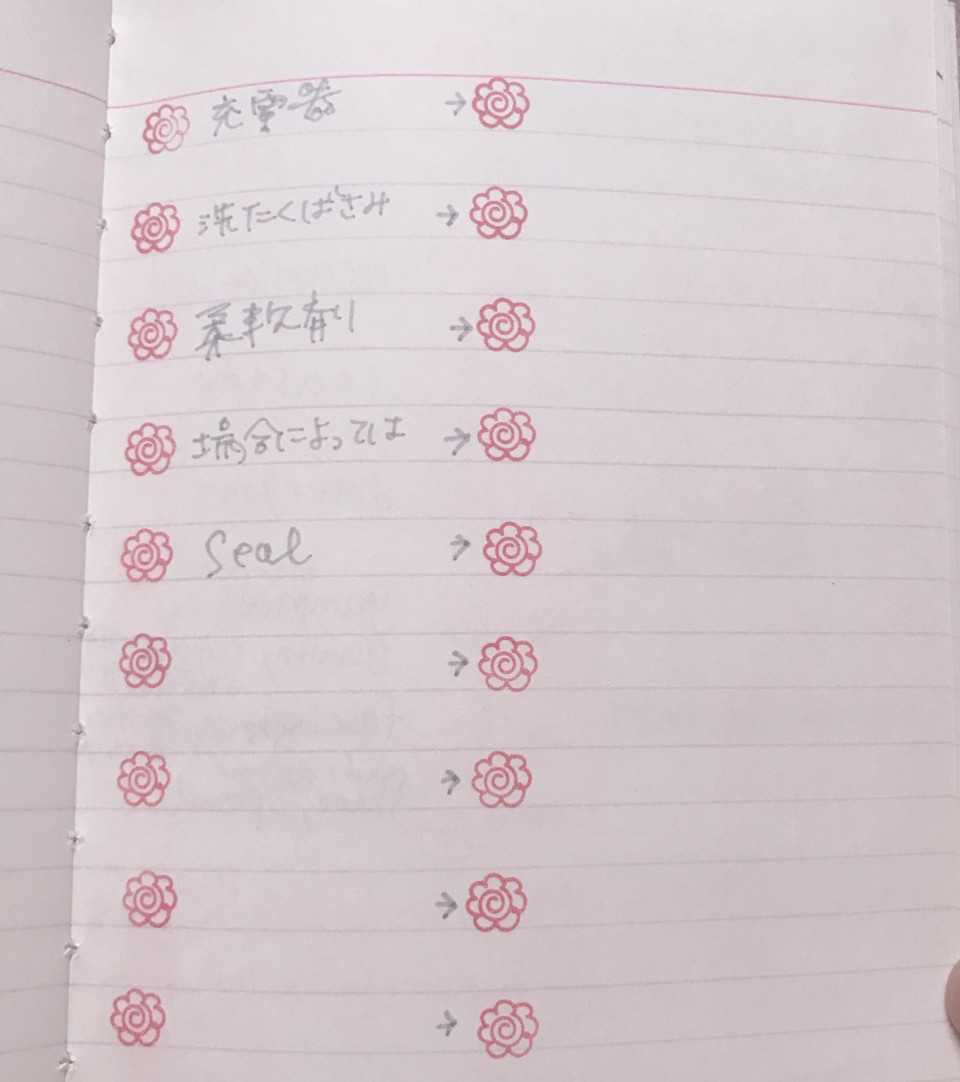 充電器 →
洗たくばさみ →
柔軟剤 →
場合によっては →
Seal →
→
→
→
→